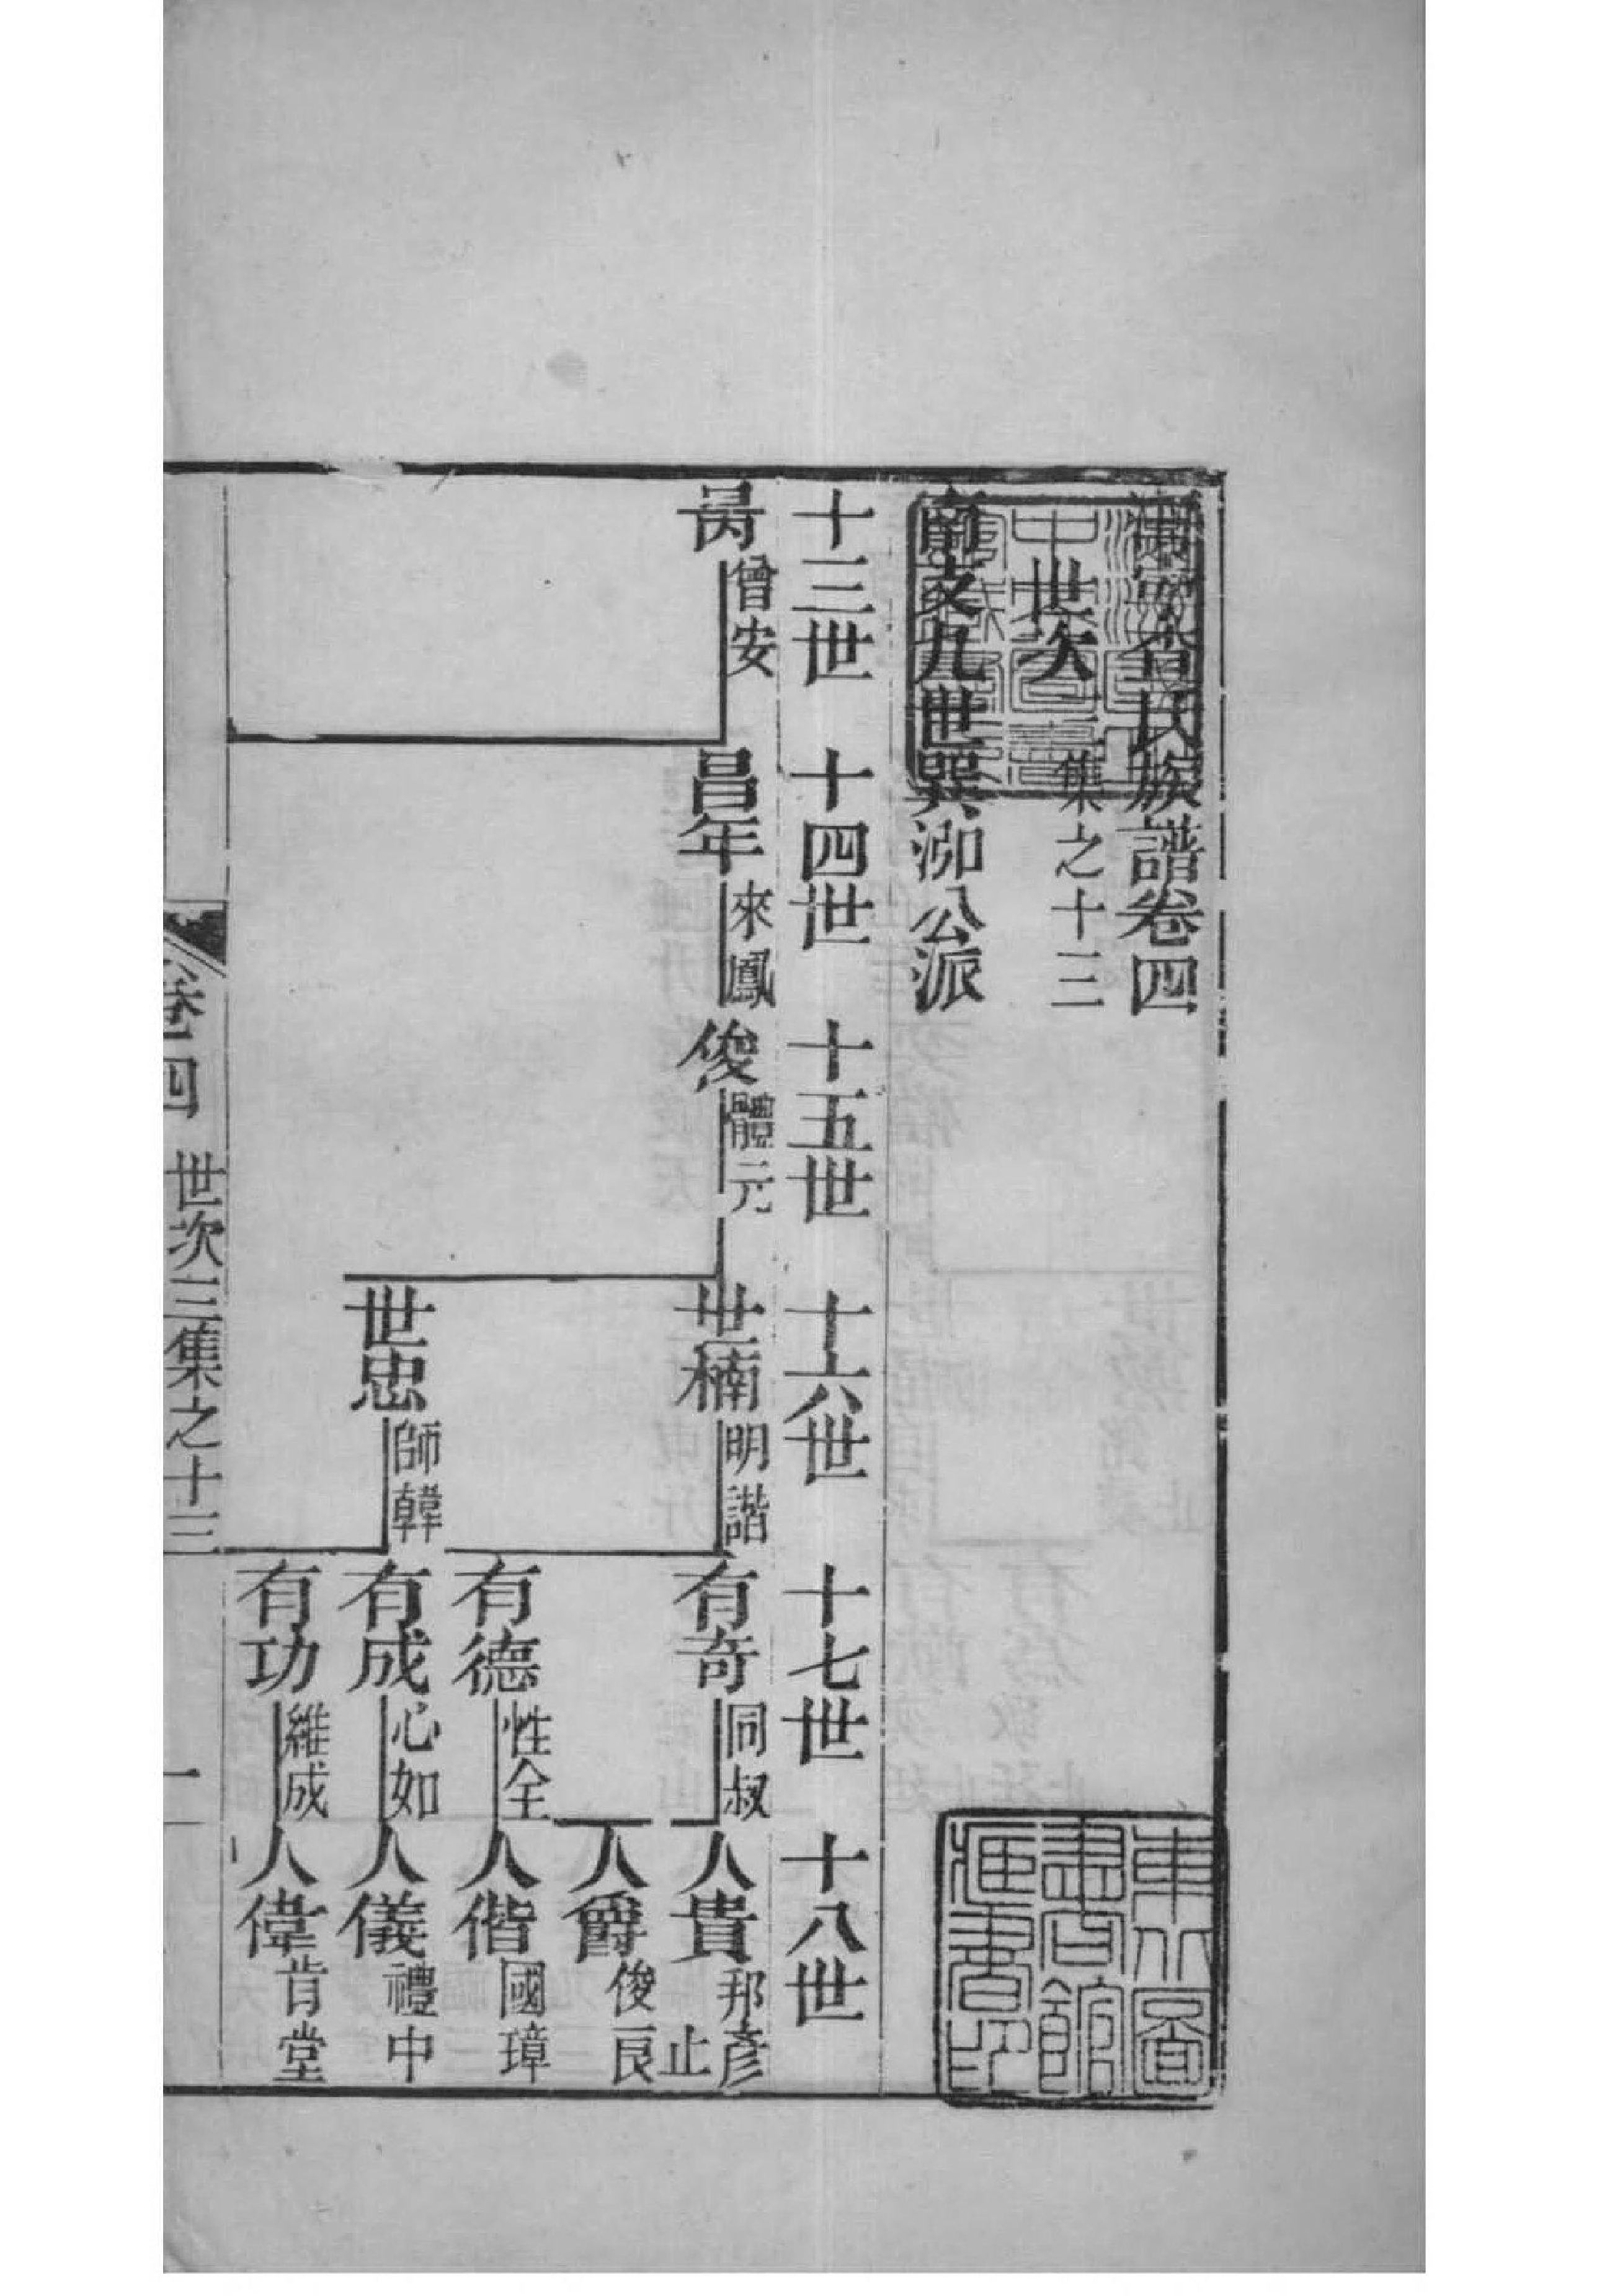 海寧查氏族譜卷四
世次三集之十三
南支九世巽泖公派
十三世 十四世 十五世 十六世 十七世 十八世
昺 曾安 昌年 來鳳 俊 體元 世楠 明諧 有奇 同叔 人貴 邦彥 止
人爵 俊良
有德 性全 人偕 國璋
世忠 師韓 有成 心如 人儀 禮中
有功 維成 人偉 肯堂
卷四 世次三集之十三 一
東北圖書館藏書印